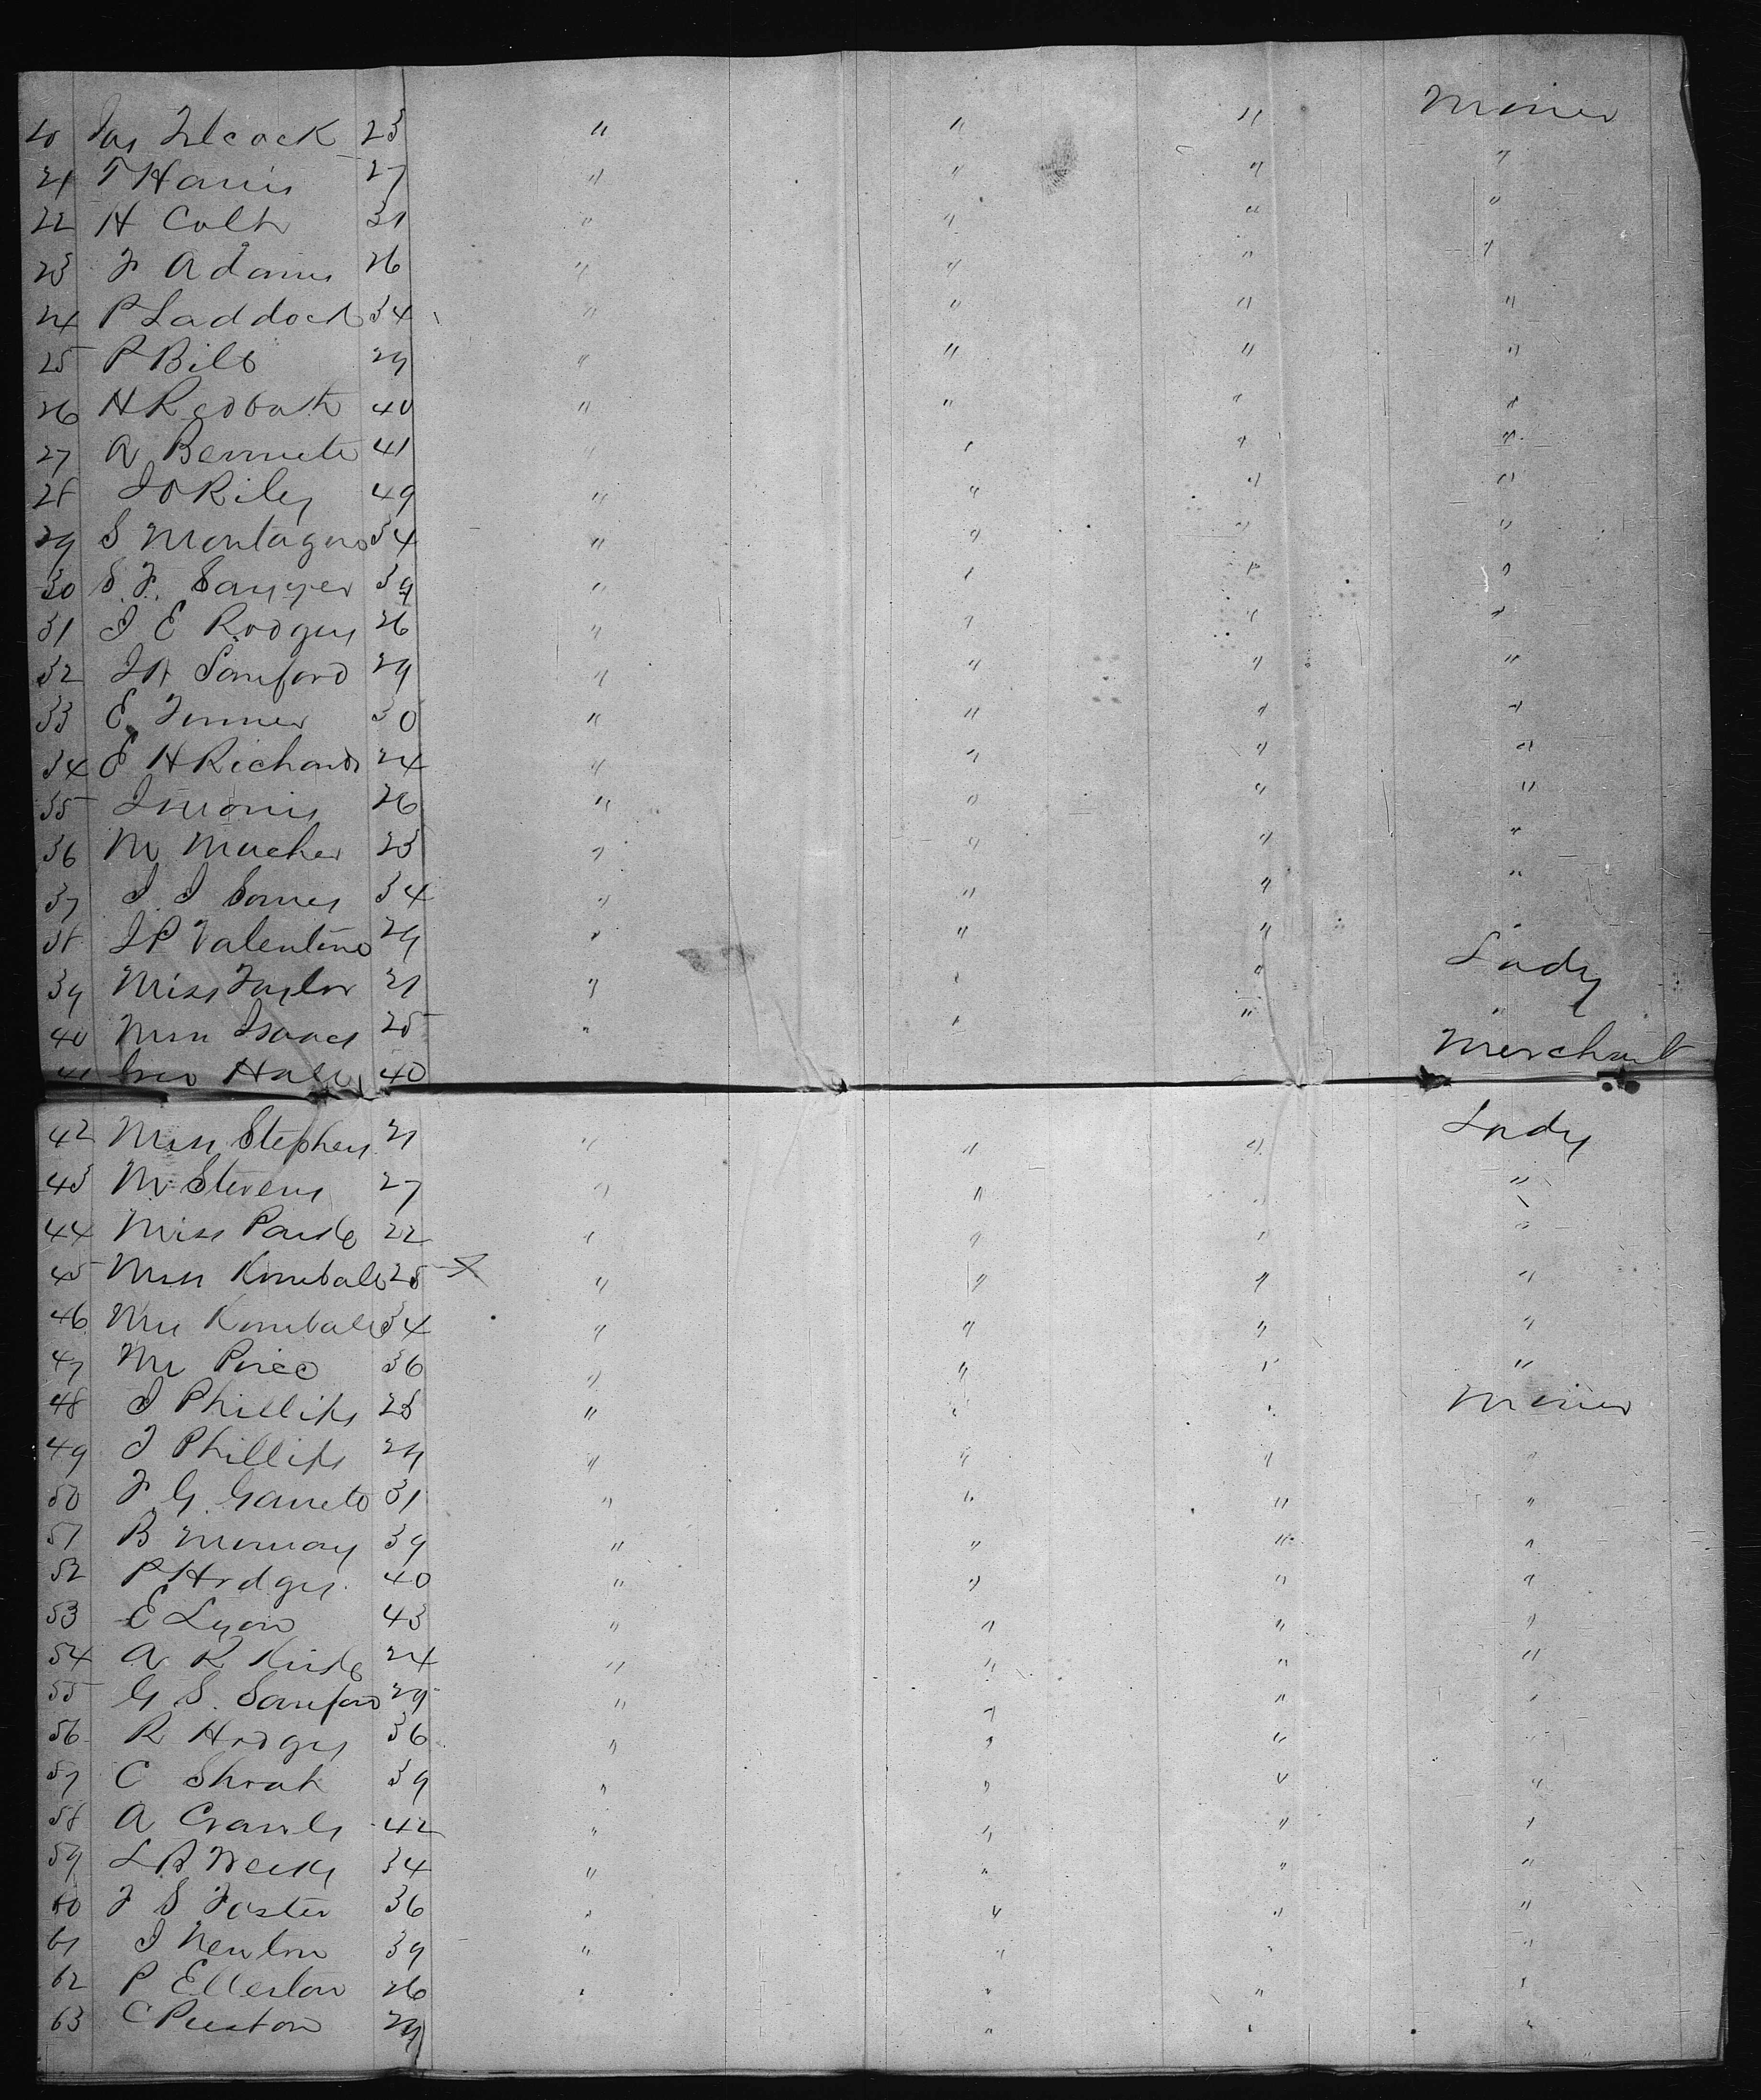 20 Jas Silcock 23 " " " Miner
21 T Harris 27 " " " "
22 H Colt 31 " " " "
23 F Adams 26 " " " "
24 P Laddock 34 " " " "
25 P Bill 29 " " " "
26 H Redbath 40 " " " "
27 A Bennett 41 " " " "
28 J O Riley 49 " " " "
29 S Montague 34 " " " "
30 S. F. Sawyer 39 " " " "
31 J E Rodgers 26 " " " "
32 J H Sanford 29 " " " "
33 E. Turner 30 " " " "
34 E H Richards 24 " " " "
35 J Morris 26 " " " "
36 M 23 " " " "
37 J. J 34 " " " "
38 J P Valentine 29 " " "
39 Miss Taylor 21 " " " Lady
40 Miss Isaacs 25 " " " "
41 Geo 40 Merchant
42 Miss Stephens 21 " " " Lady
43 Mr Stevens 27 " " " "
44 Miss 22 " " " "
45 Miss Kimball 25 x " " " "
46 Mrs Kimball 34 " " " "
47 Mr 36 " " " "
48 J Phillips 28 " " " Miner
49 J Phillips 29 " " " "
50 F. G. Garrett 31 " " " "
51 B Murray 39 " " " "
52 P Hodges 40 " " " "
53 E Lyon 43 " " " "
54 A. K 24 " " " "
55 G S. Sanford 29 " " " "
56 R Hodges 36 " " " "
57 C 39 " " " "
58 A 42 " " " "
59 L B Weeks 34 " " " "
60 F S Foster 36 " " " "
61 J Newton 39 " " " "
62 P Ellerton 26 " " " "
63 C Preston 29 " " " "